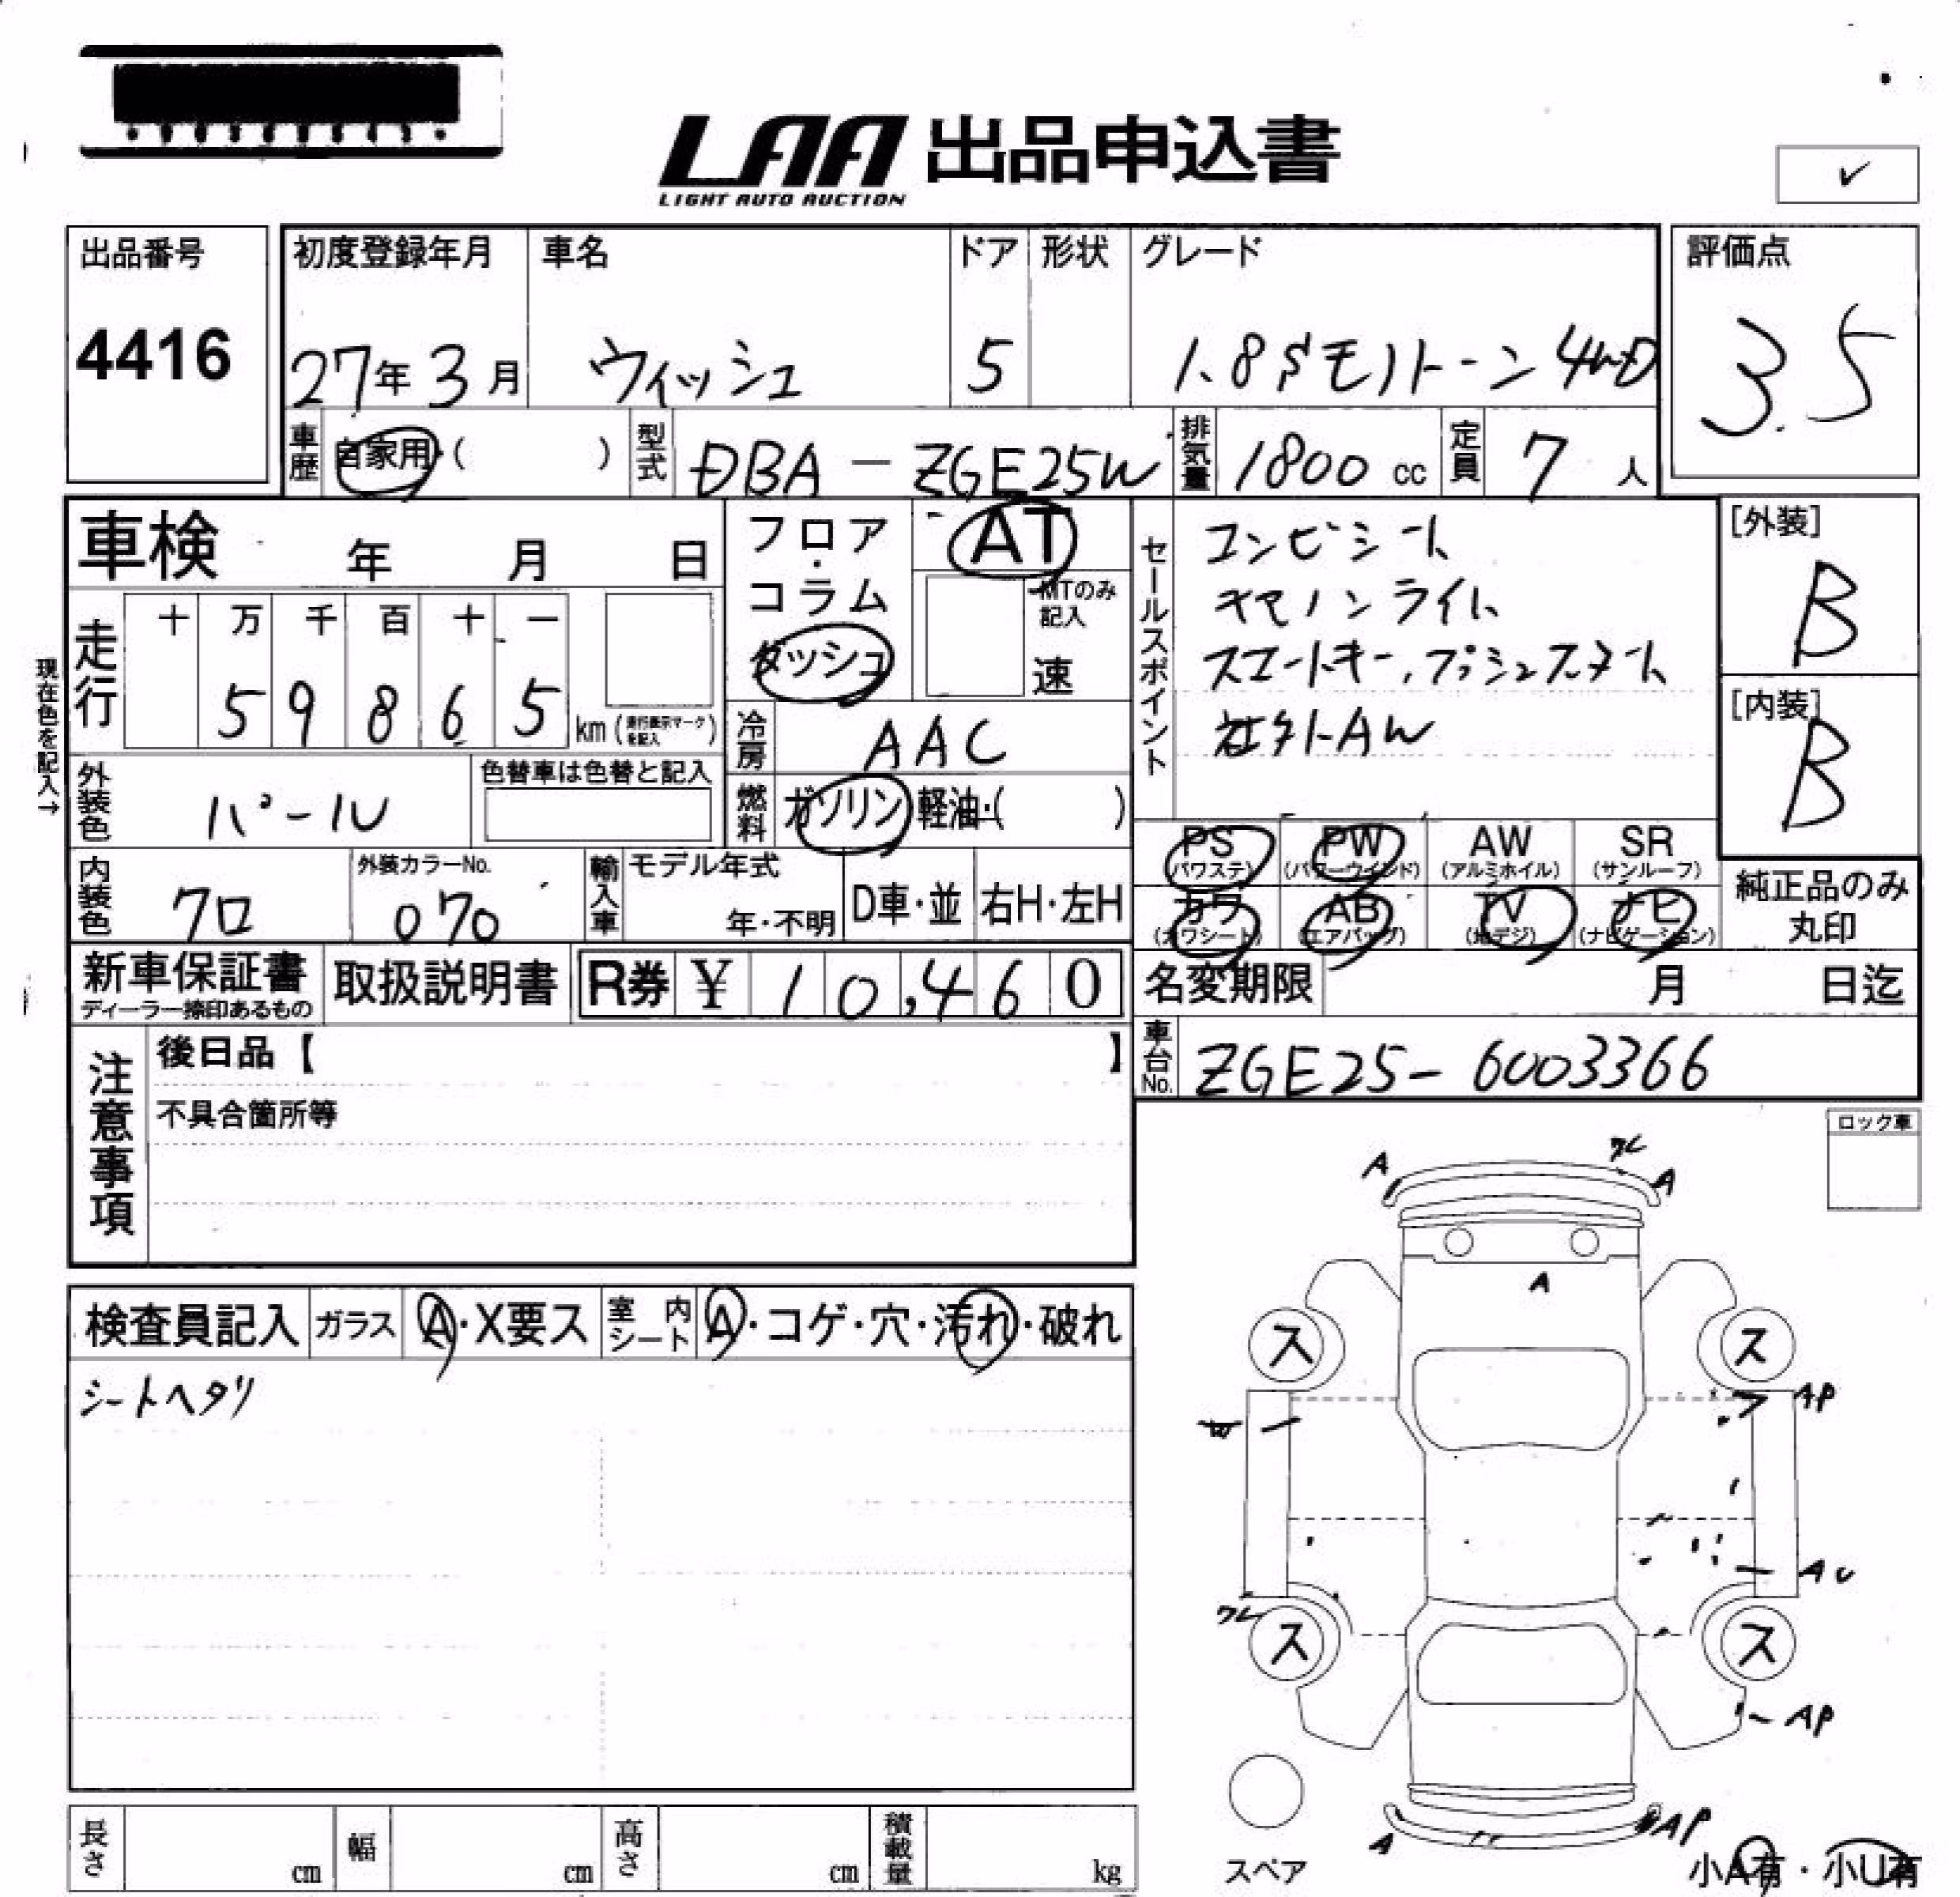 LAA 出品申込書
LIGHT AUTO AUCTION
✓
出品番号
4416
初度登録年月
27年3月
車名
ウィッシュ
ドア
5
形状
グレード
1.8Sモノトーン4WD
評価点
3.5
車歴
自家用・( )
型式
DBA-ZGE25W
排気量
1800 cc
定員
7 人
車検 年 月 日
フロア・コラム
ダッシュ
AT
MTのみ記入
速
セールスポイント
コンビシート
キセノンライト
スマートキー、プッシュスタート
社外AW
[外装]
B
[内装]
B
現在色を記入→
走行
十 万 千 百 十 一
5 9 8 6 5
km (走行表示マークを記入)
冷房
AAC
外装色
パール
色替車は色替と記入
燃料
ガソリン・軽油・( )
PS (パワステ)
PW (パワーウインド)
AW (アルミホイル)
SR (サンルーフ)
カワ (カワシート)
AB (エアバッグ)
TV (地デジ)
ナビ (ナビゲーション)
純正品のみ丸印
内装色
クロ
外装カラーNo.
070
輸入車
モデル年式
年・不明
D車・並
右H・左H
新車保証書
ディーラー捺印あるもの
取扱説明書
R券 ¥ 10,460
名変期限 月 日迄
車台No.
ZGE25-6003366
注意事項
後日品【 】
不具合箇所等
ロック車
検査員記入
ガラス
A・X要ス
室内シート
A・コゲ・穴・汚れ・破れ
シートヘタリ
A
ワレ
A
A
ス
ス
AP
W
AU
ワレ
ス
ス
AP
A
AP
スペア
小A有・小U有
長さ cm
幅 cm
高さ cm
積載量 kg